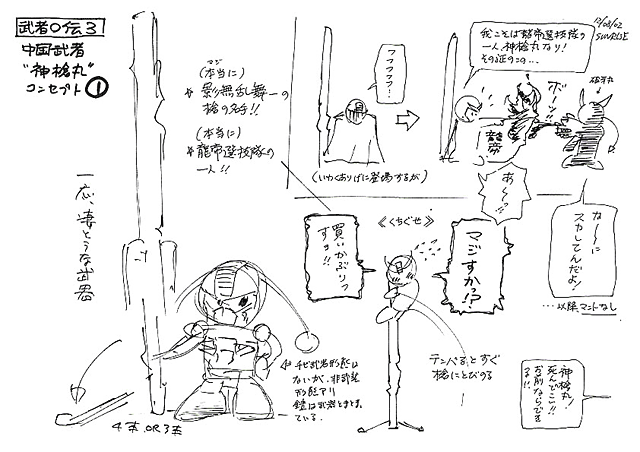 武者〇伝3
中国武者
"神槍丸"
コンセプト①
12/08/02
SUNRISE
マジ
(本当に)
影無乱舞一の
槍の名手!!
(本当に)
龍帝選技隊の
一人!!
フフフフフ…
(いわくありげに登場するが)
我こそは龍帝選技隊の
一人神槍丸なり!
その証のこの…
ボーッ!!
破牙丸
龍帝
あ〜っ?
な〜に
スカしてんだよ!
…以降、マントなし
《くちぐせ》
買いかぶりっ
すヨ!!
マジすかっ!?
テンパると、すぐ
槍にとびのる
神槍丸!
死んでこい!!
お前ならでき
る!!
一応、凄そうな武器
チビ武者形態は
ないが、非武装
形態アリ
鎧は武器とまとまっ
ている。
4本OR3本